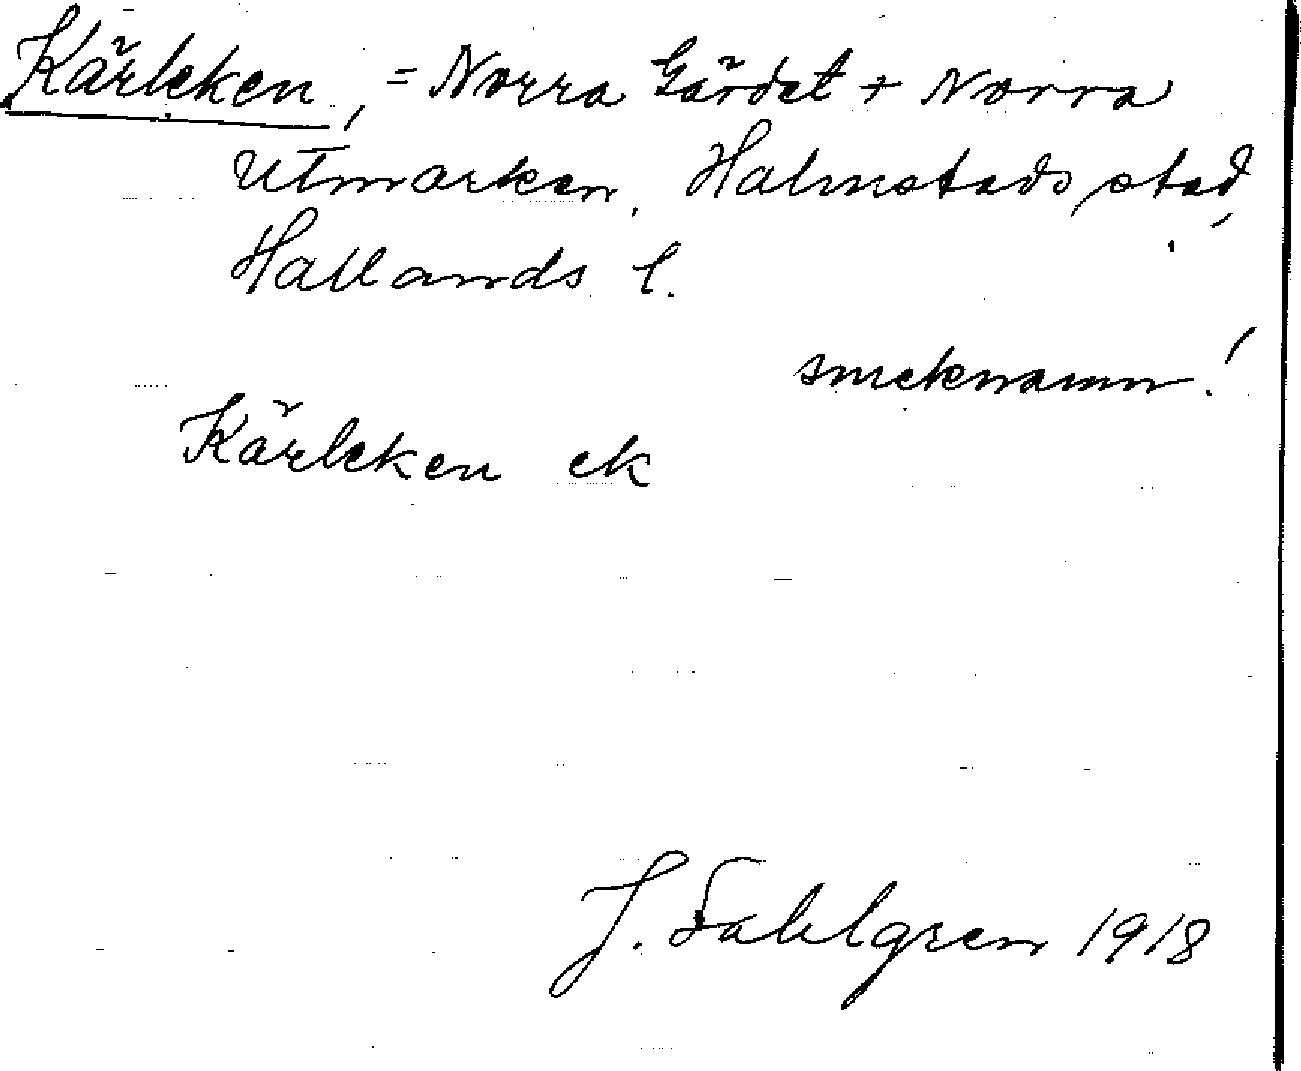 Kärleken, = Norra Gärdet + Norra
Utmarken, Halmstads stad,
Hallands l.
smeknamn!
Kärleken ek
J. Sahlgren 1918